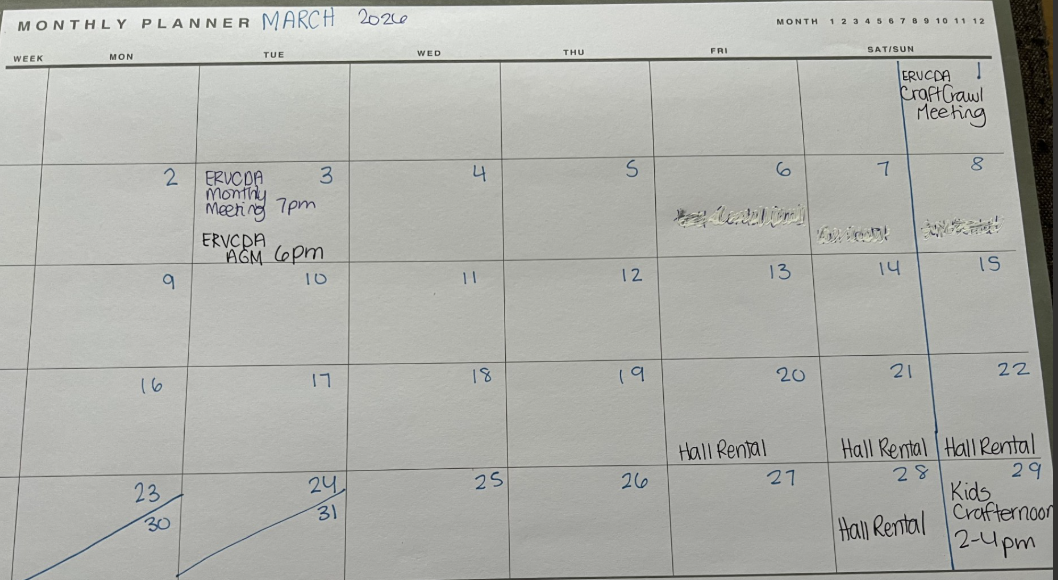 MONTHLY PLANNER MARCH 2026
MONTH 1 2 3 4 5 6 7 8 9 10 11 12
WEEK MON TUE WED THU FRI SAT/SUN
1
ERVCDA
CraftCrawl
Meeting
2
3
ERVCDA
Monthly
Meeting 7pm
ERVCDA
AGM 6pm
4
5
6
7
8
9
10
11
12
13
14
15
16
17
18
19
20
Hall Rental
21
Hall Rental
22
Hall Rental
23
30
24
31
25
26
27
28
Hall Rental
29
Kids
Crafternoon
2-4pm